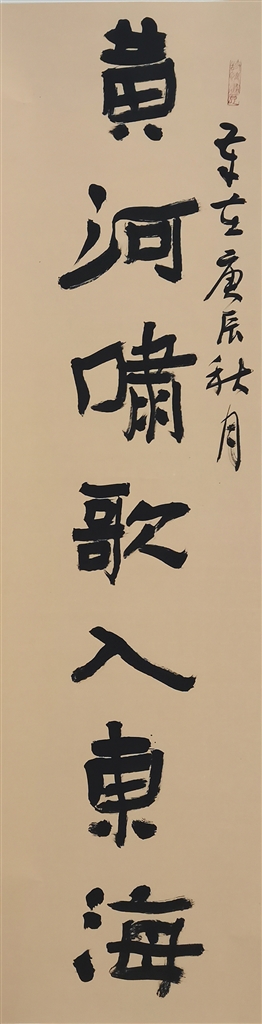 歲在庚辰秋月
黃河嘯歌入東海